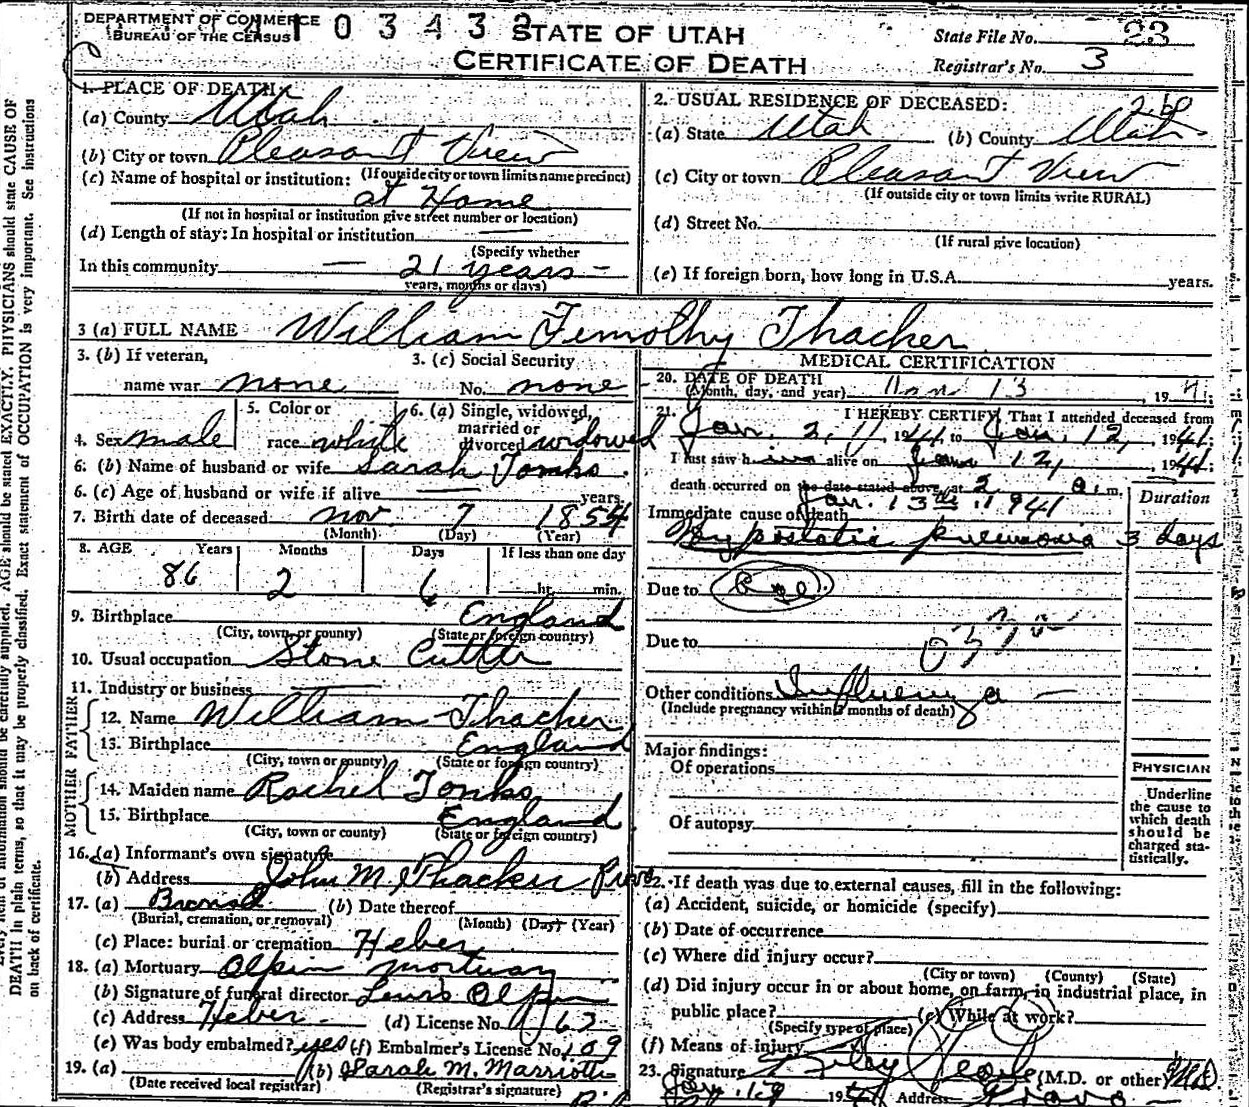 DEPARTMENT OF COMMERCE
BUREAU OF THE CENSUS
0 3 4 3 2
STATE OF UTAH
CERTIFICATE OF DEATH
State File No. 23
Registrar's No. 3
1. PLACE OF DEATH:
(a) County Utah
(b) City or town Pleasant View
(If outside city or town limits name precinct)
(c) Name of hospital or institution:
at Home
(If not in hospital or institution give street number or location)
(d) Length of stay: In hospital or institution
(Specify whether
In this community 21 years
years, months or days)
2. USUAL RESIDENCE OF DECEASED:
(a) State Utah (b) County Utah
(c) City or town Pleasant View
(If outside city or town limits write RURAL)
(d) Street No.
(If rural give location)
(e) If foreign born, how long in U.S.A. years.
3 (a) FULL NAME William Timothy Thacker
3. (b) If veteran,
name war none
3. (c) Social Security
No. none
4. Sex male
5. Color or
race white
6. (a) Single, widowed,
married or
divorced widowed
6. (b) Name of husband or wife Sarah Tonks
6. (c) Age of husband or wife if alive years.
7. Birth date of deceased Nov 7 1854
(Month) (Day) (Year)
8. AGE Years Months Days If less than one day
86 2 6 hr. min.
9. Birthplace England
(City, town or county) (State or foreign country)
10. Usual occupation Stone Cutter
11. Industry or business
FATHER
12. Name William Thacker
13. Birthplace England
(City, town or county) (State or foreign country)
MOTHER
14. Maiden name Rachel Tonks
15. Birthplace England
(City, town or county) (State or foreign country)
16. (a) Informant's own signature
(b) Address John M Thacker
17. (a) Burial (b) Date thereof
(Burial, cremation, or removal) (Month) (Day) (Year)
(c) Place: burial or cremation Heber
18. (a) Mortuary Olpin Mortuary
(b) Signature of funeral director Olpin
(c) Address Heber (d) License No.
(e) Was body embalmed? yes (f) Embalmer's License No. 109
19. (a) (b) Sarah M. Marriott
(Date received local registrar) (Registrar's signature)
MEDICAL CERTIFICATION
20. DATE OF DEATH
(Month, day, and year) Jan 13, 194
21. I HEREBY CERTIFY, That I attended deceased from
Jan. 2, 1941, to Jan. 12, 1941;
I last saw him alive on Jan 12, 1941
death occurred on the date stated above, at 2 a.m.
Jan. 13th 1941
Duration
Immediate cause of death
Hypostatic pneumonia 3 days
Due to Age
Due to
Other conditions Influenza
(Include pregnancy within 3 months of death)
Major findings:
Of operations
Of autopsy
PHYSICIAN
Underline
the cause to
which death
should be
charged sta-
tistically.
22. If death was due to external causes, fill in the following:
(a) Accident, suicide, or homicide (specify)
(b) Date of occurrence
(c) Where did injury occur?
(City or town) (County) (State)
(d) Did injury occur in or about home, on farm, in industrial place, in
public place? (e) While at work?
(Specify type of place)
(f) Means of injury
23. Signature (M.D. or other) M.D.
Address Provo
DEATH in plain terms, so that it may be properly classified. Exact statement of OCCUPATION is very important. See instructions
on back of certificate.